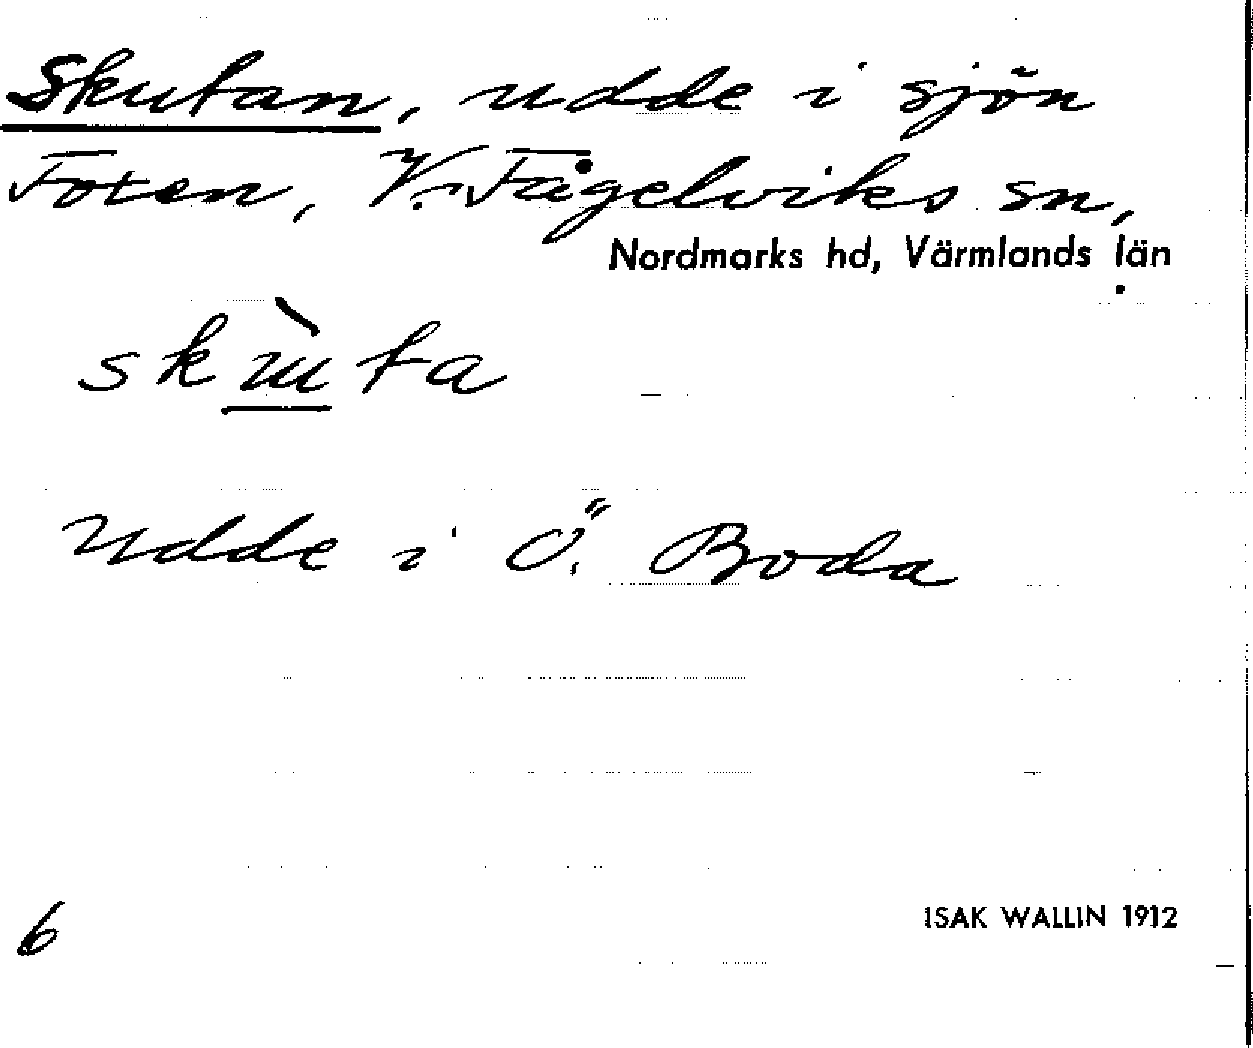 Skutan, udde i sjön
Foxen, V. Fågelviks sn,
Nordmarks hd, Värmlands län
skùta
Udde i Ö. Boda
6
ISAK WALLIN 1912